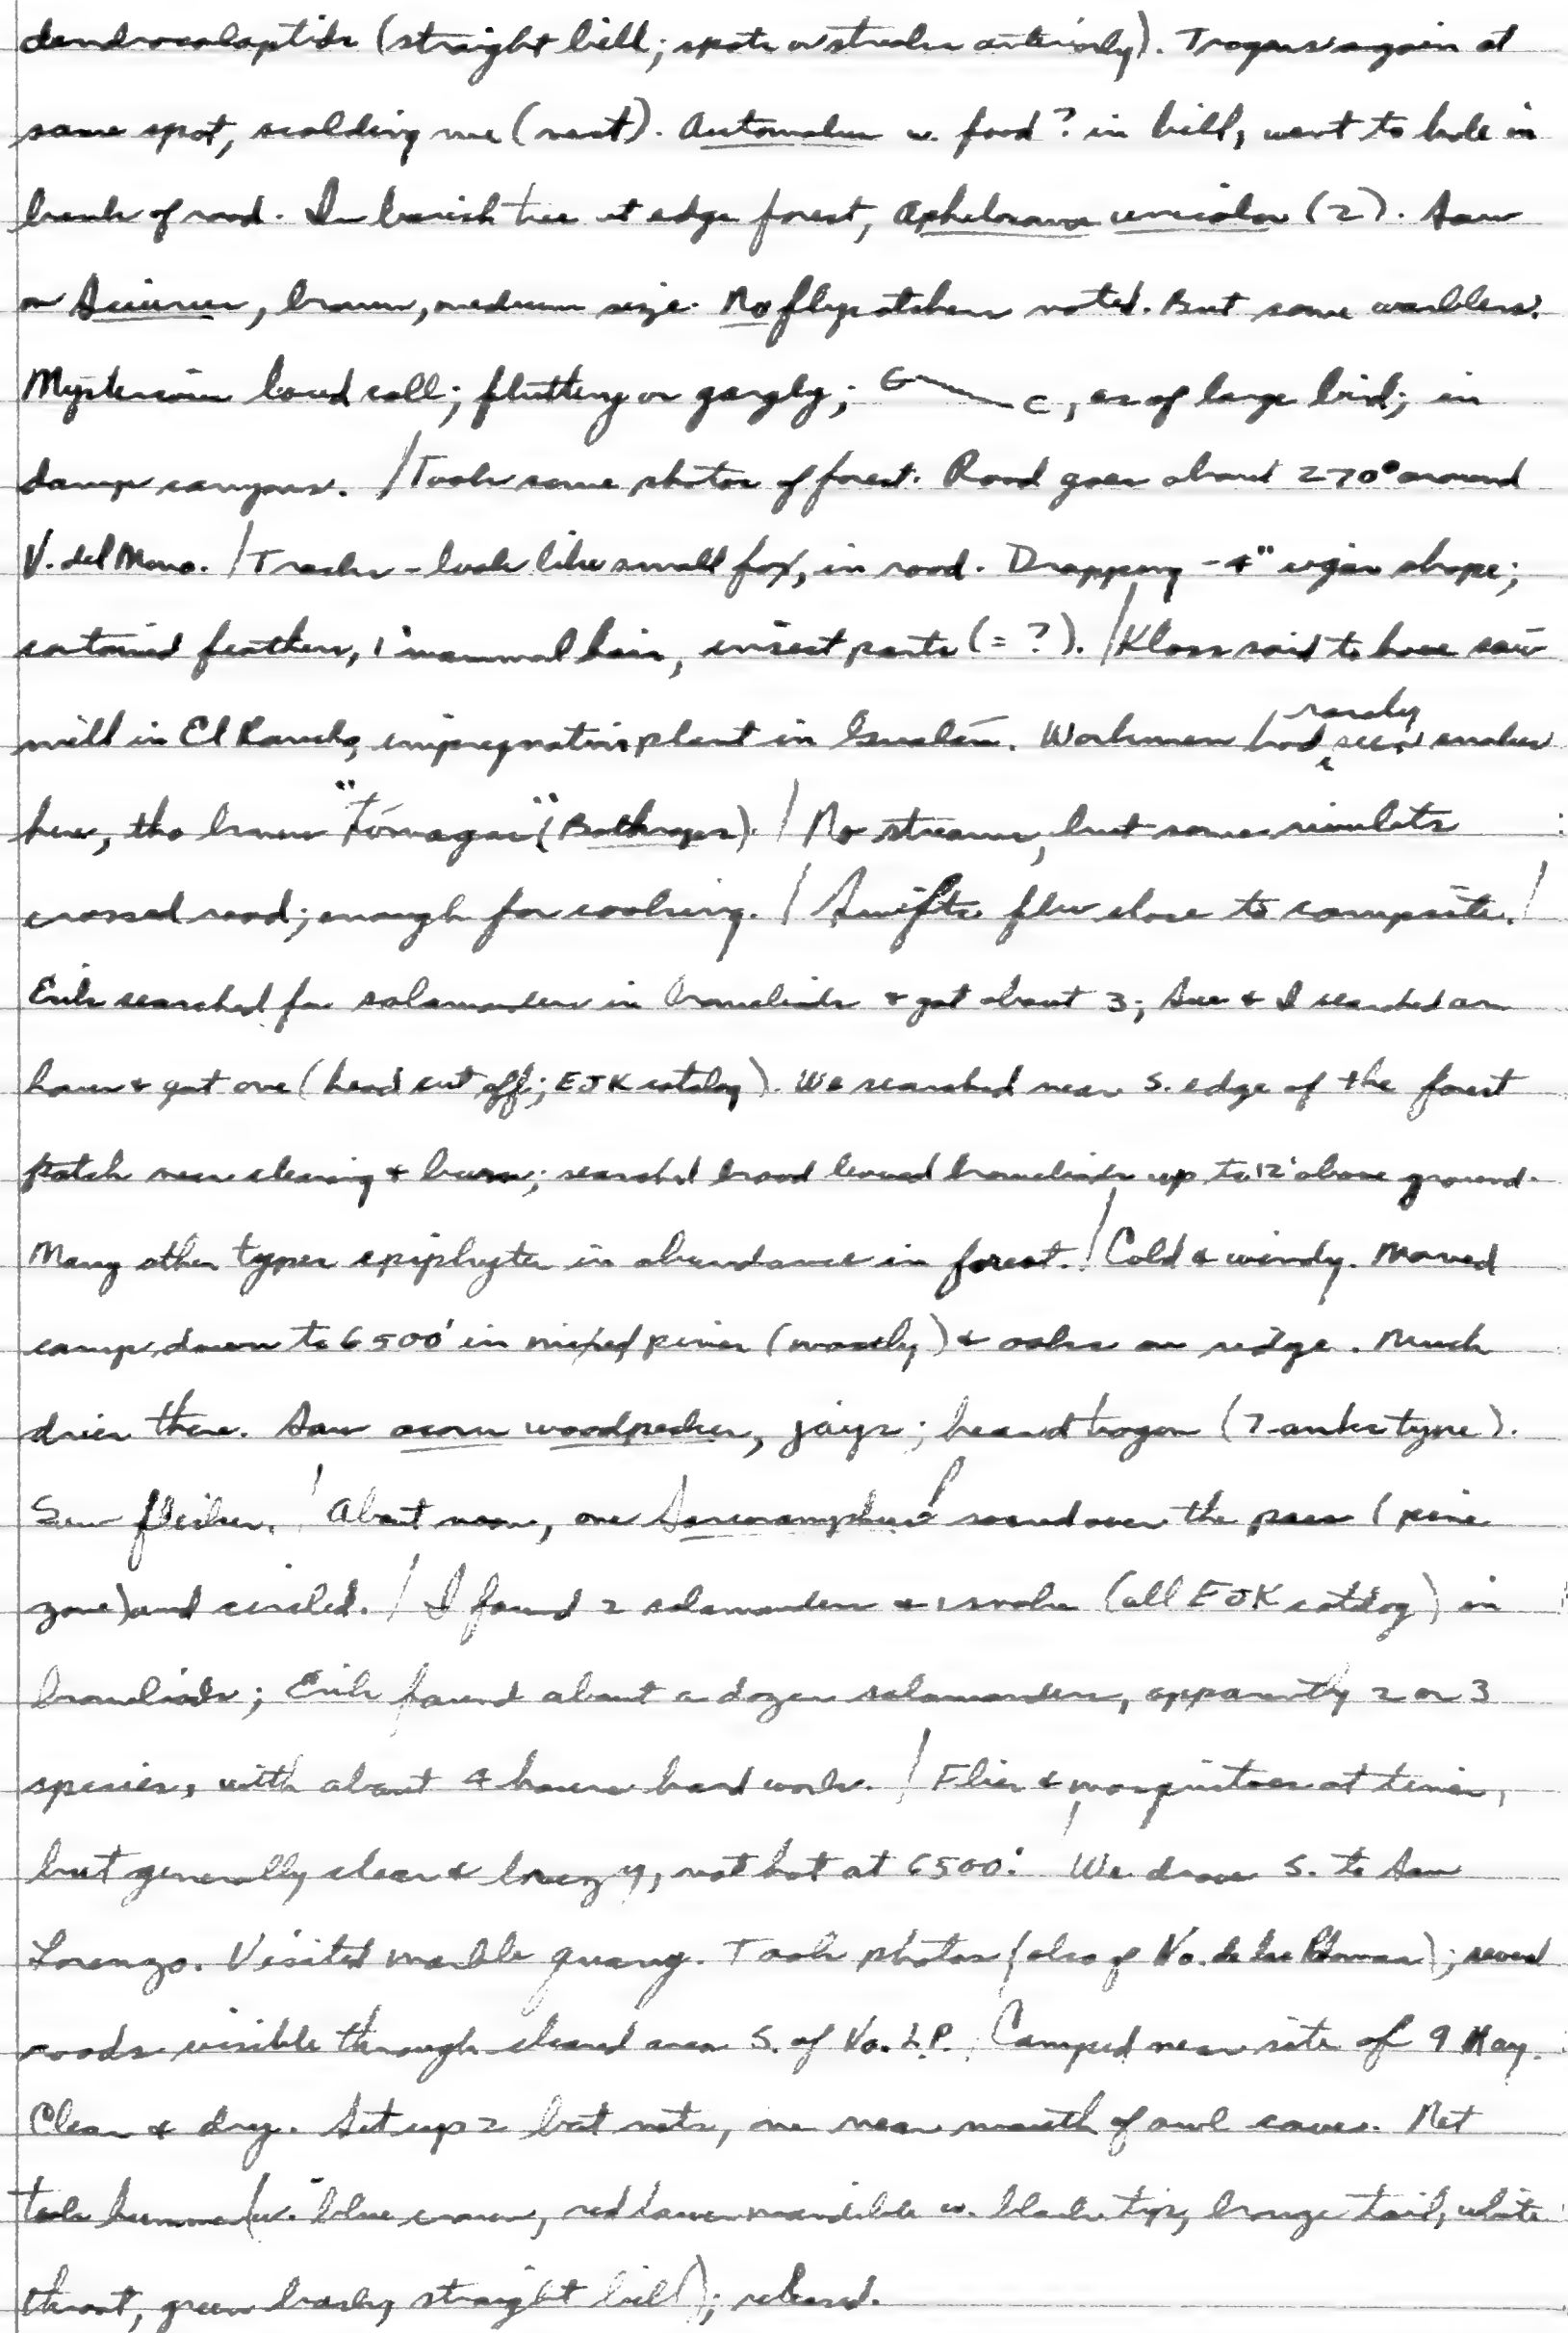 dendrocolaptids (straight bill; spots or streaks anteriorly). Trogons again at
same spot, scolding me (nest). Automolus w. food? in bill, went to hole in
bank of road. In bearish tree at edge forest, Aphelocoma unicolor (2). Saw
a Sciurus, brown, medium size. No flycatchers noted. But some warblers.
Mysterious loud call; fluttery or gargly; G C, as of large bird; in
damp canyons. / Took some photos of forest. Road goes about 270° around
V. del Mono. / Tracks - look like small fox, in road. Dropping - 4" cigar shape;
contained feathers, 1 mammal hair, insect parts (= ?). / Kloss said to have saw
mill in El Rancho, impregnation plant in Gualán. Workmen had rarely seen snakes
here, tho knew "Tómagas" (Bothrops). / No streams, but some rivulets
crossed road; enough for cooking. / Swifts flew close to campsite. /
Erik searched for salamanders in bromeliads & got about 3; Sue & I searched an
hour & got one (head cut off; EJK catalog). We searched near S. edge of the forest
patch near clearing & burn; searched broad leaved bromeliads up to 12' above ground.
Many other types epiphytes in abundance in forest. / Cold & windy. Moved
camp down to 6500' in mixed pines (mostly) & oaks on ridge. Much
drier there. Saw acorn woodpecker, jays; heard trogon (?-anke type).
Saw flicker. / About noon, one Sarcoramphus soared over the pass (pine
zone) and circled. / I found 2 salamanders & 1 snake (all EJK catalog) in
bromeliads; Erik found about a dozen salamanders, apparently 2 or 3
species, with about 4 hours hard work. / Flies & mosquitoes at times,
but generally clear & breezy, not hot at 6500'. / We drove S. to San
Lorenzo. Visited marble quarry. Took photos (also of Va. de las Palmas); several
roads visible through cleared area S. of Va. L.P. Camped near site of 9 May.
Clear & dry. Set up 2 bat nets, one near mouth of owl caves. Net
took hummer (w. blue crown, red lower mandible w. black tip, bronze tail, white
throat, green back, straight bill); released.